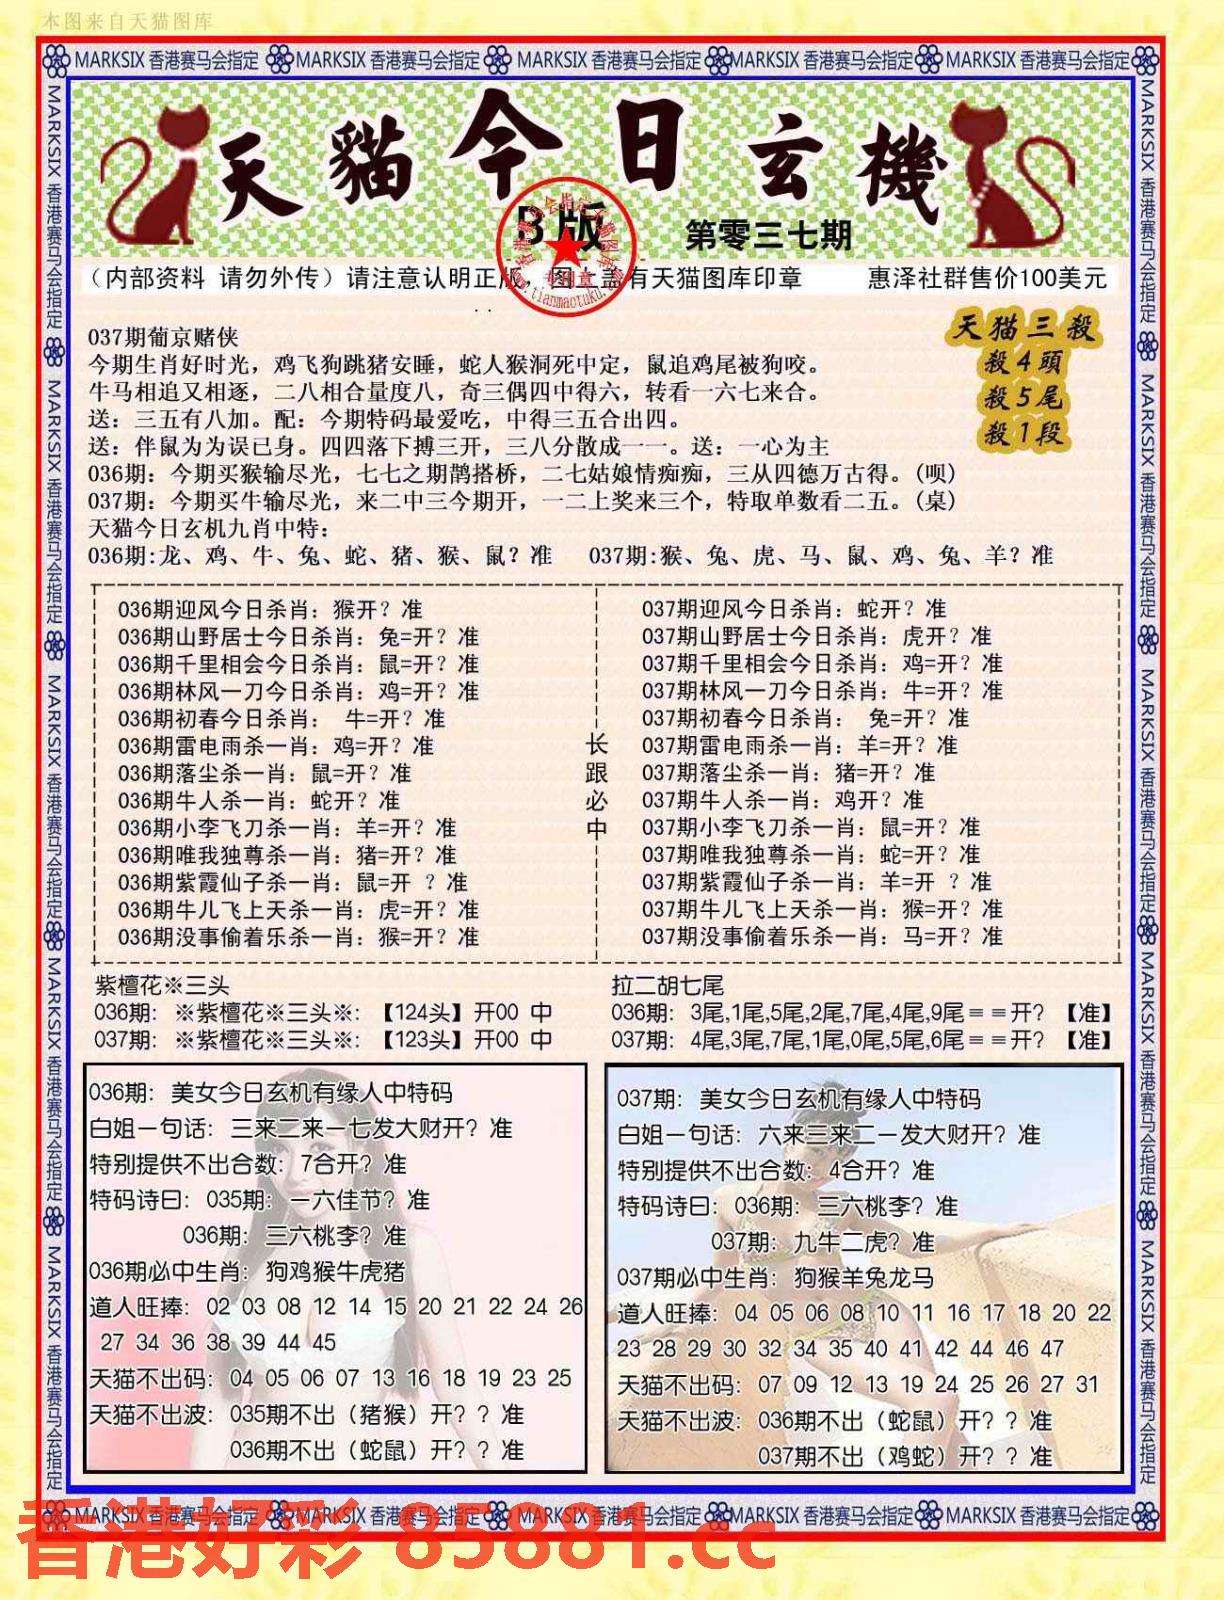 本图来自天猫图库
MARKSIX 香港赛马会指定 MARKSIX 香港赛马会指定 MARKSIX 香港赛马会指定 MARKSIX 香港赛马会指定 MARKSIX 香港赛马会指定
天貓今日玄機
B版 第零三七期
（内部资料 请勿外传）请注意认明正版 图 盖有天猫图库印章 惠泽社群售价100美元
天猫三殺
殺4頭
殺5尾
殺1段
037期葡京赌侠
今期生肖好时光，鸡飞狗跳猪安睡，蛇人猴洞死中定，鼠追鸡尾被狗咬。
牛马相追又相逐，二八相合量度八，奇三偶四中得六，转看一六七来合。
送：三五有八加。配：今期特码最爱吃，中得三五合出四。
送：伴鼠为为误已身。四四落下搏三开，三八分散成一一。送：一心为主
036期：今期买猴输尽光，七七之期鹊搭桥，二七姑娘情痴痴，三从四德万古得。(呗)
037期：今期买牛输尽光，来二中三今期开，一二上奖来三个，特取单数看二五。(桌)
天猫今日玄机九肖中特：
036期:龙、鸡、牛、兔、蛇、猪、猴、鼠？准 037期:猴、兔、虎、马、鼠、鸡、兔、羊？准
036期迎风今日杀肖：猴开？准
036期山野居士今日杀肖：兔=开？准
036期千里相会今日杀肖：鼠=开？准
036期林风一刀今日杀肖：鸡=开？准
036期初春今日杀肖： 牛=开？准
036期雷电雨杀一肖：鸡=开？准
036期落尘杀一肖：鼠=开？准
036期牛人杀一肖：蛇开？准
036期小李飞刀杀一肖：羊=开？准
036期唯我独尊杀一肖：猪=开？准
036期紫霞仙子杀一肖：鼠=开 ？准
036期牛儿飞上天杀一肖：虎=开？准
036期没事偷着乐杀一肖：猴=开？准
长跟必中
037期迎风今日杀肖：蛇开？准
037期山野居士今日杀肖：虎开？准
037期千里相会今日杀肖：鸡=开？准
037期林风一刀今日杀肖：牛=开？准
037期初春今日杀肖： 兔=开？准
037期雷电雨杀一肖：羊=开？准
037期落尘杀一肖：猪=开？准
037期牛人杀一肖：鸡开？准
037期小李飞刀杀一肖：鼠=开？准
037期唯我独尊杀一肖：蛇=开？准
037期紫霞仙子杀一肖：羊=开 ？准
037期牛儿飞上天杀一肖：猴=开？准
037期没事偷着乐杀一肖：马=开？准
紫檀花※三头
036期：※紫檀花※三头※:【124头】开00 中
037期：※紫檀花※三头※:【123头】开00 中
拉二胡七尾
036期：3尾,1尾,5尾,2尾,7尾,4尾,9尾＝＝开？【准】
037期：4尾,3尾,7尾,1尾,0尾,5尾,6尾＝＝开？【准】
036期：美女今日玄机有缘人中特码
白姐一句话：三来二来一七发大财开？准
特别提供不出合数：7合开？准
特码诗曰：035期：一六佳节？准
036期：三六桃李？准
036期必中生肖：狗鸡猴牛虎猪
道人旺捧：02 03 08 12 14 15 20 21 22 24 26
27 34 36 38 39 44 45
天猫不出码：04 05 06 07 13 16 18 19 23 25
天猫不出波：035期不出（猪猴）开？？准
036期不出（蛇鼠）开？？准
037期：美女今日玄机有缘人中特码
白姐一句话：六来三来二一发大财开？准
特别提供不出合数：4合开？准
特码诗曰：036期：三六桃李？准
037期：九牛二虎？准
037期必中生肖：狗猴羊兔龙马
道人旺捧：04 05 06 08 10 11 16 17 18 20 22
23 28 29 30 32 34 35 40 41 42 44 46 47
天猫不出码：07 09 12 13 19 24 25 26 27 31
天猫不出波：036期不出（蛇鼠）开？？准
037期不出（鸡蛇）开？？准
MARKSIX 香港赛马会指定 MARKSIX 香港赛马会指定 MARKSIX 香港赛马会指定 MARKSIX 香港赛马会指定 MARKSIX 香港赛马会指定
香港好彩 85881.cc
MARKSIX 香港赛马会指定 MARKSIX 香港赛马会指定 MARKSIX 香港赛马会指定 MARKSIX 香港赛马会指定 MARKSIX 香港赛马会指定
MARKSIX 香港赛马会指定 MARKSIX 香港赛马会指定 MARKSIX 香港赛马会指定 MARKSIX 香港赛马会指定 MARKSIX 香港赛马会指定